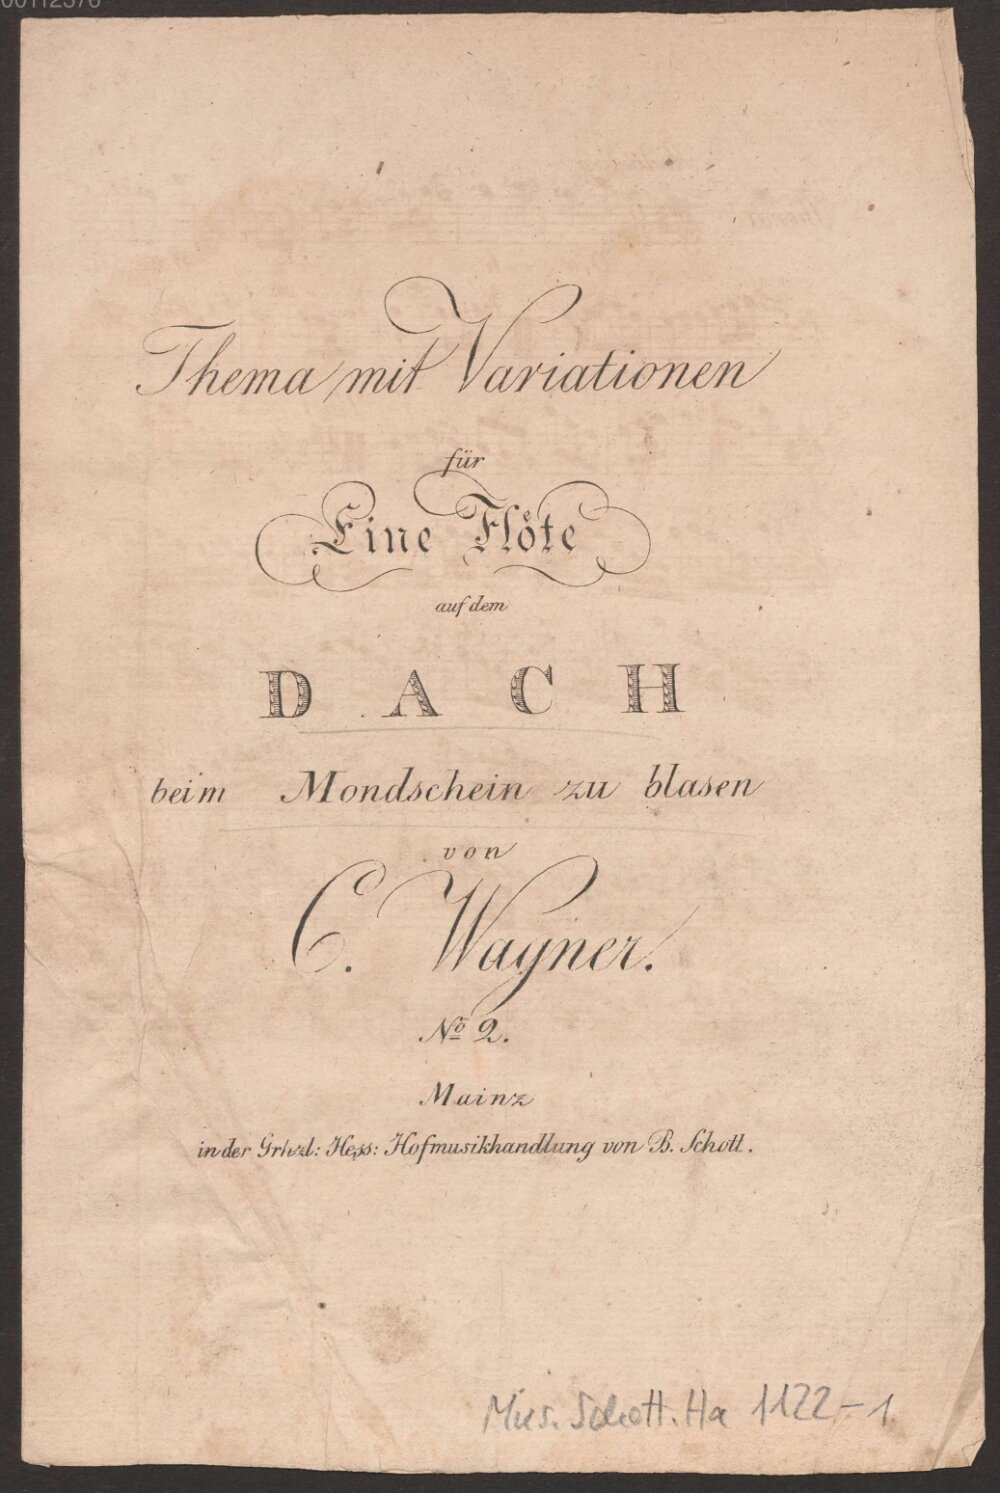 00112376
Thema mit Variationen
für
Eine Flöte
auf dem
DACH
beim Mondschein zu blasen
von
C. Wagner.
No 2.
Mainz
in der Grhzl: Hess: Hofmusikhandlung von B. Schott.
Mus. Schott. Ha 1122-1